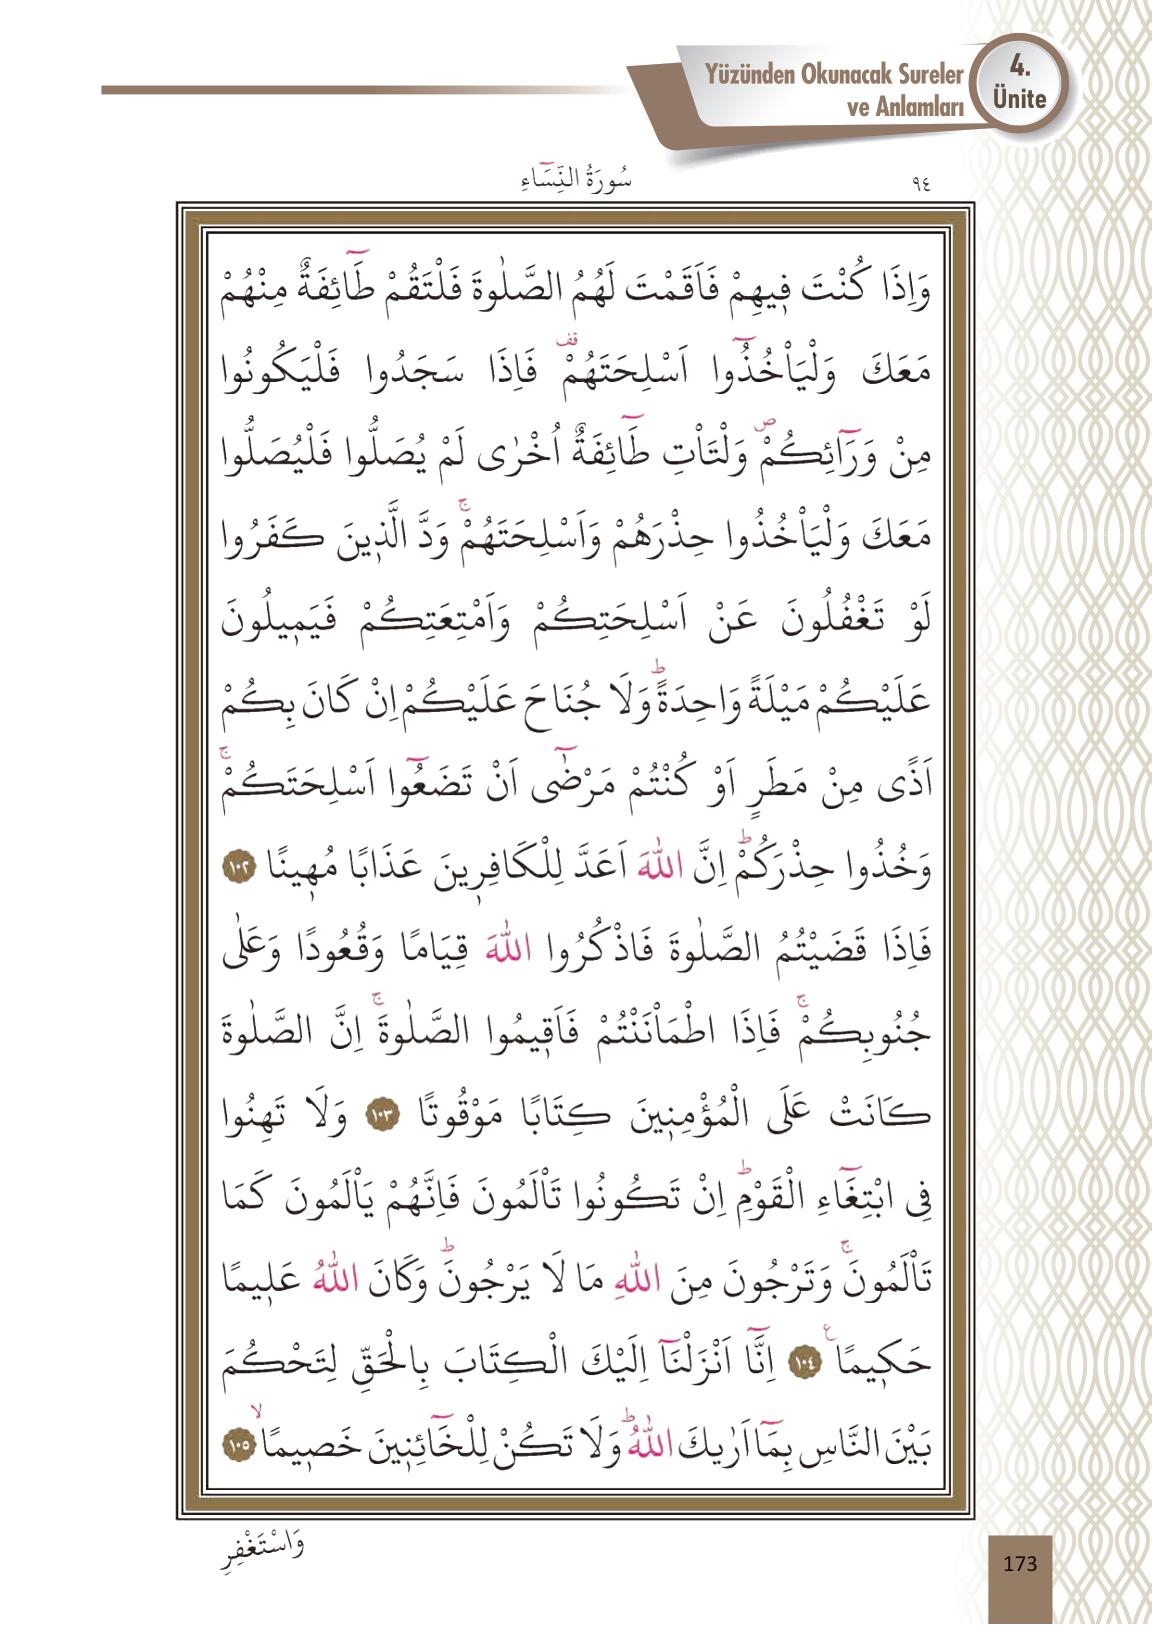 Yüzünden Okunacak Sureler
ve Anlamları
4.
Ünite
سُورَةُ النِّسَٓاءِ
٩٤
وَاِذَا كُنْتَ ف۪يهِمْ فَاَقَمْتَ لَهُمُ الصَّلٰوةَ فَلْتَقُمْ طَٓائِفَةٌ مِنْهُمْ
مَعَكَ وَلْيَأْخُذُٓوا اَسْلِحَتَهُمْ۠ فَاِذَا سَجَدُوا فَلْيَكُونُوا
مِنْ وَرَٓائِكُمْۖ وَلْتَأْتِ طَٓائِفَةٌ اُخْرٰى لَمْ يُصَلُّوا فَلْيُصَلُّوا
مَعَكَ وَلْيَأْخُذُوا حِذْرَهُمْ وَاَسْلِحَتَهُمْۚ وَدَّ الَّذ۪ينَ كَفَرُوا
لَوْ تَغْفُلُونَ عَنْ اَسْلِحَتِكُمْ وَاَمْتِعَتِكُمْ فَيَم۪يلُونَ
عَلَيْكُمْ مَيْلَةً وَاحِدَةًۜ وَلَا جُنَاحَ عَلَيْكُمْ اِنْ كَانَ بِكُمْ
اَذًى مِنْ مَطَرٍ اَوْ كُنْتُمْ مَرْضٰٓى اَنْ تَضَعُٓوا اَسْلِحَتَكُمْۚ
وَخُذُوا حِذْرَكُمْۜ اِنَّ اللّٰهَ اَعَدَّ لِلْكَافِر۪ينَ عَذَابًا مُه۪ينًا ١٠٢
فَاِذَا قَضَيْتُمُ الصَّلٰوةَ فَاذْكُرُوا اللّٰهَ قِيَامًا وَقُعُودًا وَعَلٰى
جُنُوبِكُمْۚ فَاِذَا اطْمَأْنَنْتُمْ فَاَق۪يمُوا الصَّلٰوةَۚ اِنَّ الصَّلٰوةَ
كَانَتْ عَلَى الْمُؤْمِن۪ينَ كِتَابًا مَوْقُوتًا ١٠٣ وَلَا تَهِنُوا
فِى ابْتِغَٓاءِ الْقَوْمِۜ اِنْ تَكُونُوا تَأْلَمُونَ فَاِنَّهُمْ يَأْلَمُونَ كَمَا
تَأْلَمُونَۚ وَتَرْجُونَ مِنَ اللّٰهِ مَا لَا يَرْجُونَۜ وَكَانَ اللّٰهُ عَل۪يمًا
حَك۪يمًاع ١٠٤ اِنَّٓا اَنْزَلْنَٓا اِلَيْكَ الْكِتَابَ بِالْحَقِّ لِتَحْكُمَ
بَيْنَ النَّاسِ بِمَٓا اَرٰيكَ اللّٰهُۜ وَلَا تَكُنْ لِلْخَٓائِن۪ينَ خَص۪يمًاۙ ١٠٥
وَاسْتَغْفِرِ
173